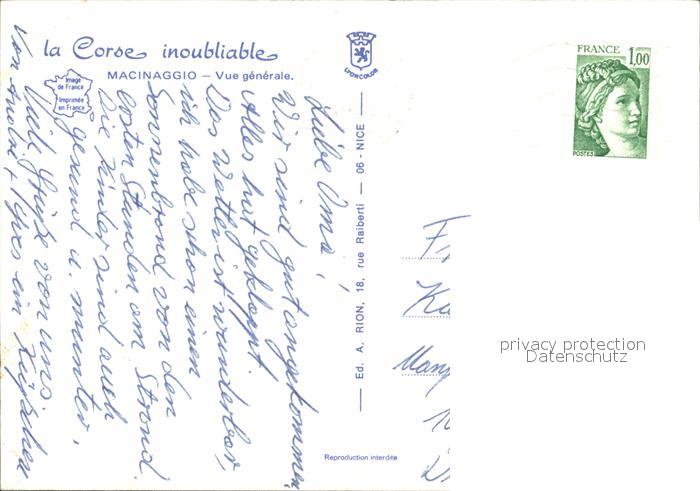 la Corse inoubliable
MACINAGGIO — Vue générale.
Image
de France
Imprimée
en France
LYONCOLOR
Liebe Oma!
Wir sind gut angekommen
Alles hat geklappt
Das Wetter ist wunderbar,
ich habe schon einen
Sonnenbrand von den
ersten Stunden am Strand.
Die Kinder sind auch
gesund u. munter.
Viele Grüße von uns
Von André + Yves ein Küßchen
Ed. A. RION, 18, rue Raiberti — 06 - NICE
Reproduction interdite
FRANCE 1,00
POSTES
privacy protection
Datenschutz